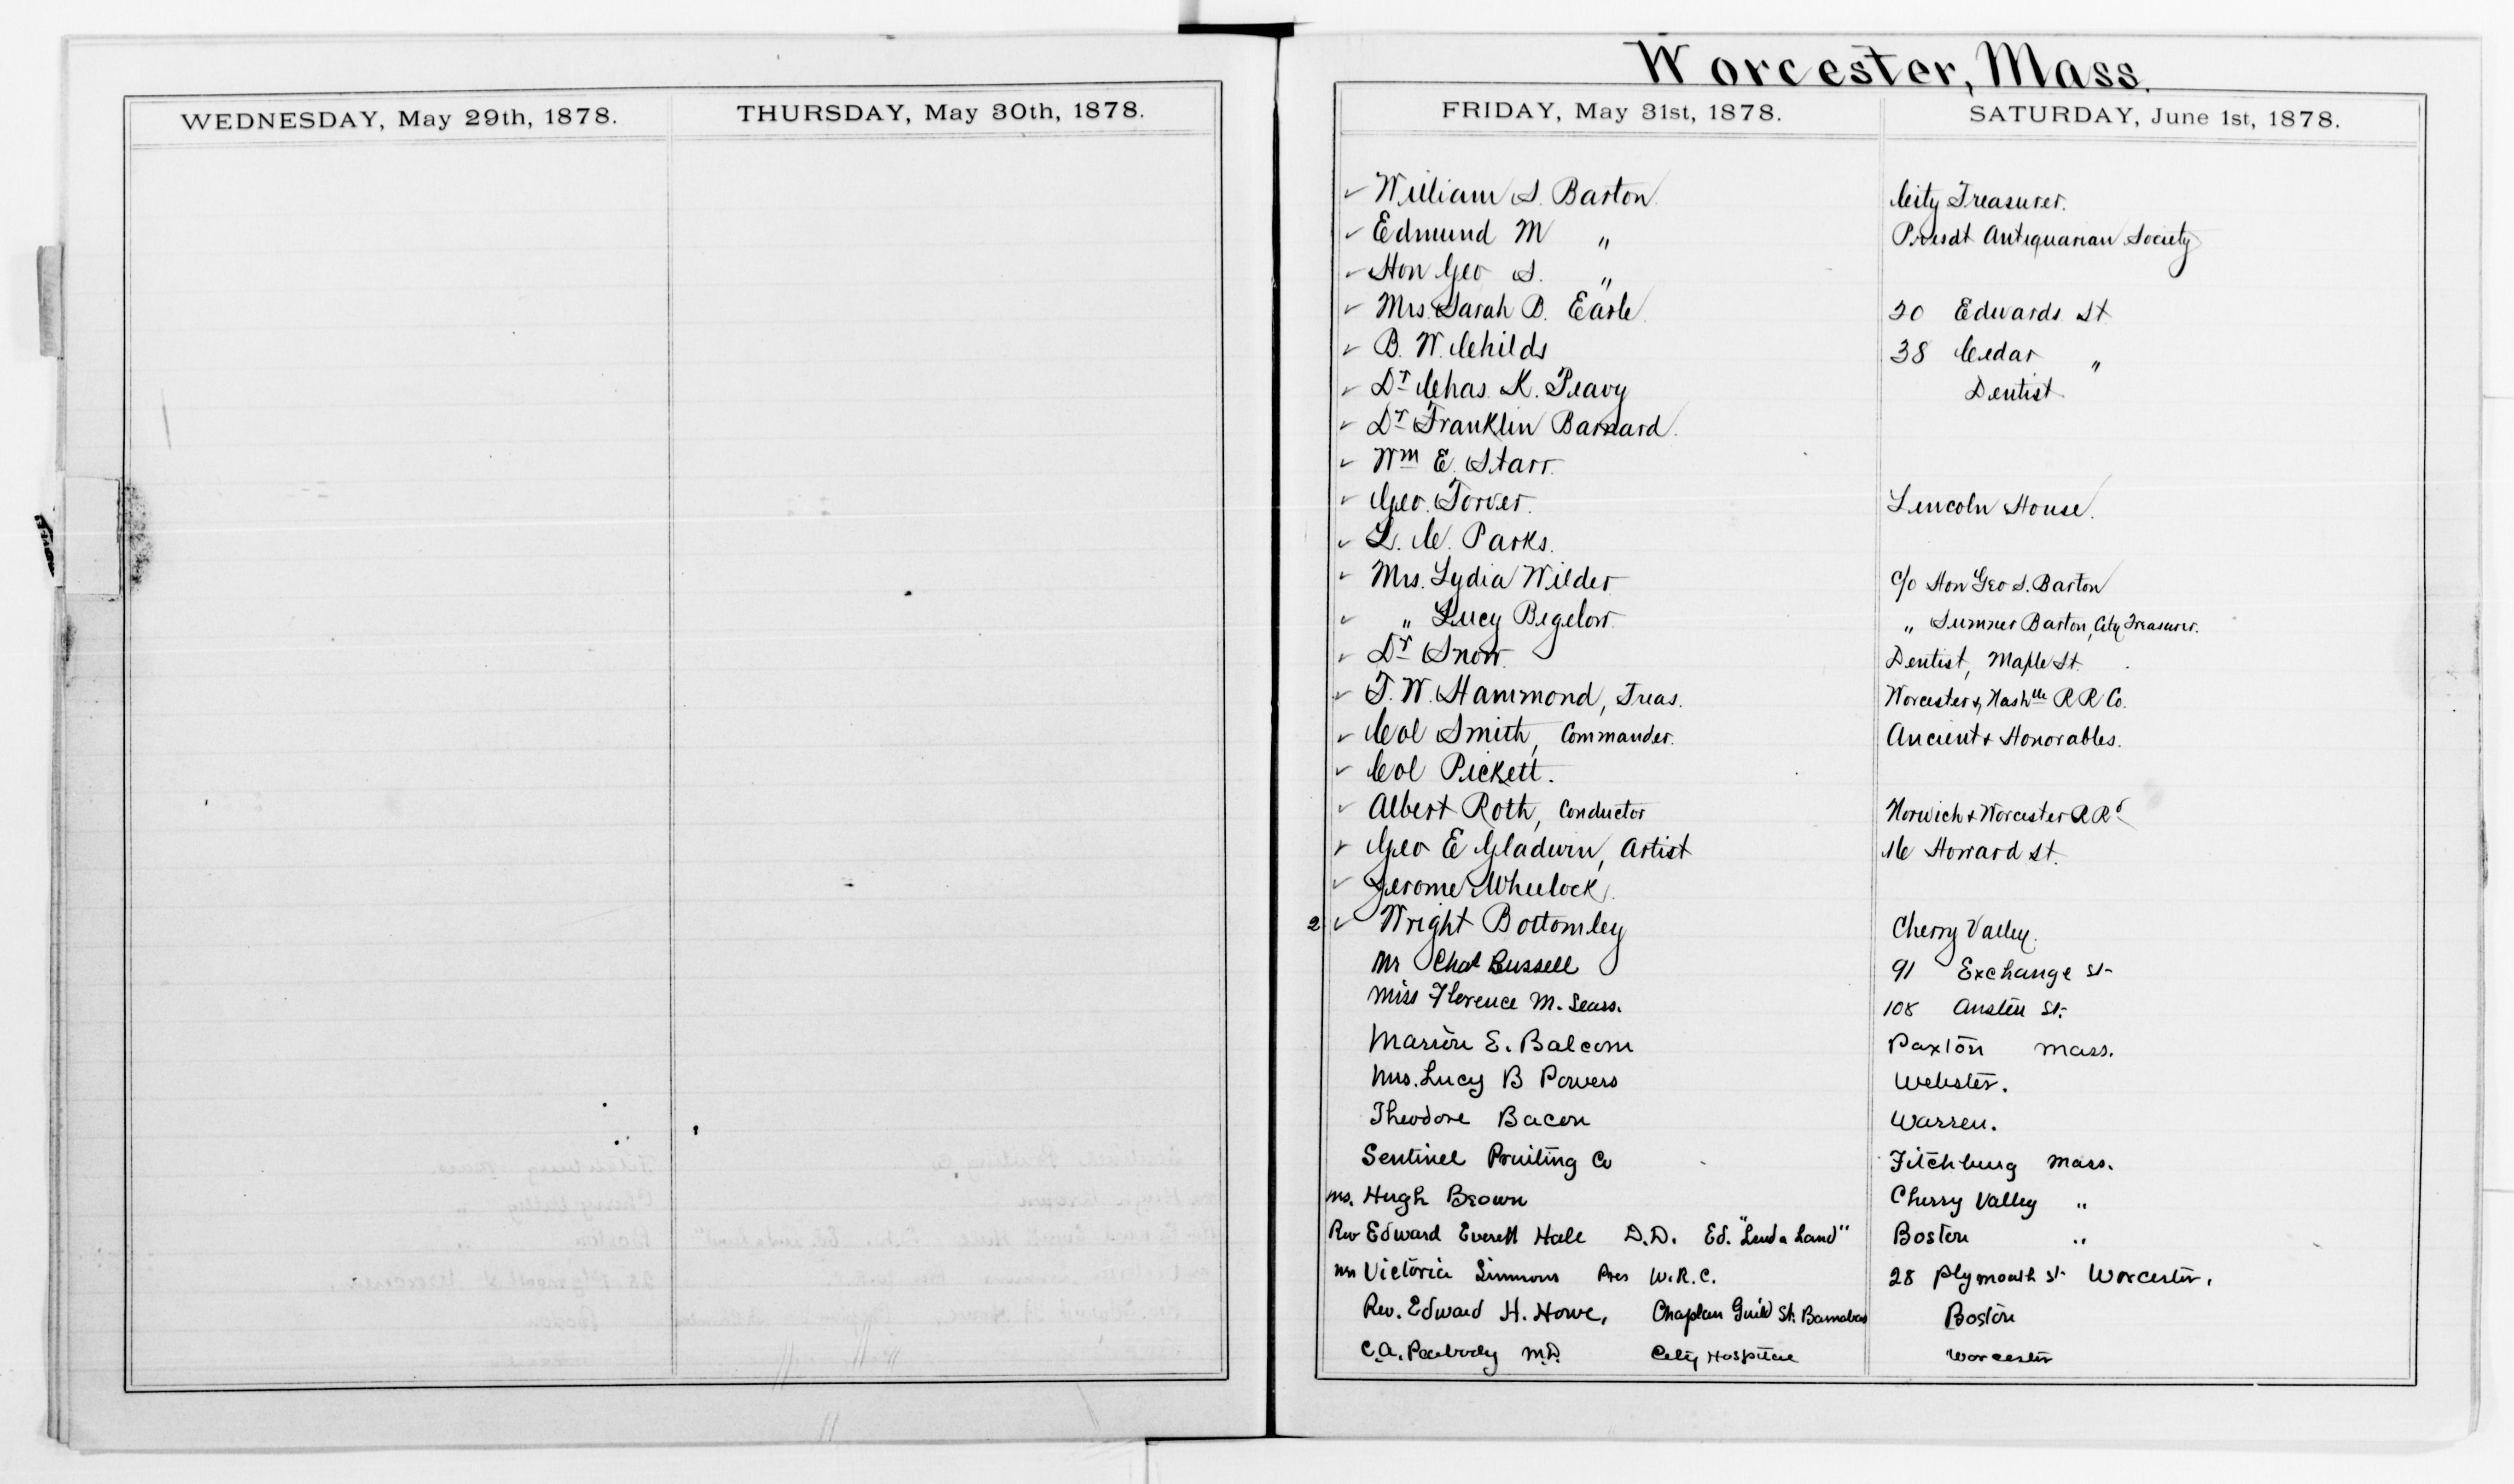 WEDNESDAY, May 29th, 1878.
THURSDAY, May 30th, 1878.
Worcester, Mass.
FRIDAY, May 31st, 1878.
SATURDAY, June 1st, 1878.
✓ William S. Barton. City Treasurer.
✓ Edmund M " Presdt Antiquarian Society
✓ Hon Geo S. "
✓ Mrs. Sarah B. Earle 20 Edwards St
✓ B. W. Childs 38 Cedar "
✓ Dr Chas. K. Peavy Dentist
✓ Dr Franklin Barnard.
✓ Wm E. Starr.
✓ Geo. Torver. Lincoln House.
✓ L. C. Parks.
✓ Mrs. Lydia Wilder c/o Hon Geo S. Barton
✓ " Lucy Bigelow. " Sumner Barton, City Treasurer.
✓ Dr Snow. Dentist, Maple St.
✓ T. W. Hammond, Treas. Worcester & Nashlle R R Co.
✓ Col Smith, Commander. Ancient & Honorables.
✓ Col Pickett.
✓ Albert Roth, Conductor Norwich & Worcester R Rd
✓ Geo E Gladwin, Artist 16 Howard St.
✓ Jerome Wheelock.
2 ✓ Wright Bottomley Cherry Valley.
Mr Chas Bussell 91 Exchange St
Miss Florence M. Sears. 108 Austin St.
Marion E. Balcom Paxton Mass.
Mrs. Lucy B Powers Webster.
Theodore Bacon Warren.
Sentinel Printing Co Fitchburg Mass.
Mrs. Hugh Brown Cherry Valley "
Rev Edward Everett Hale D.D. Ed. "Lend a hand" Boston "
Mrs Victoria Simmons Pres W.R.C. 28 Plymouth St Worcester.
Rev. Edward H. Howe, Chaplain Guild St. Barnabas Boston
C.A. Peabody M.D. City Hospital Worcester